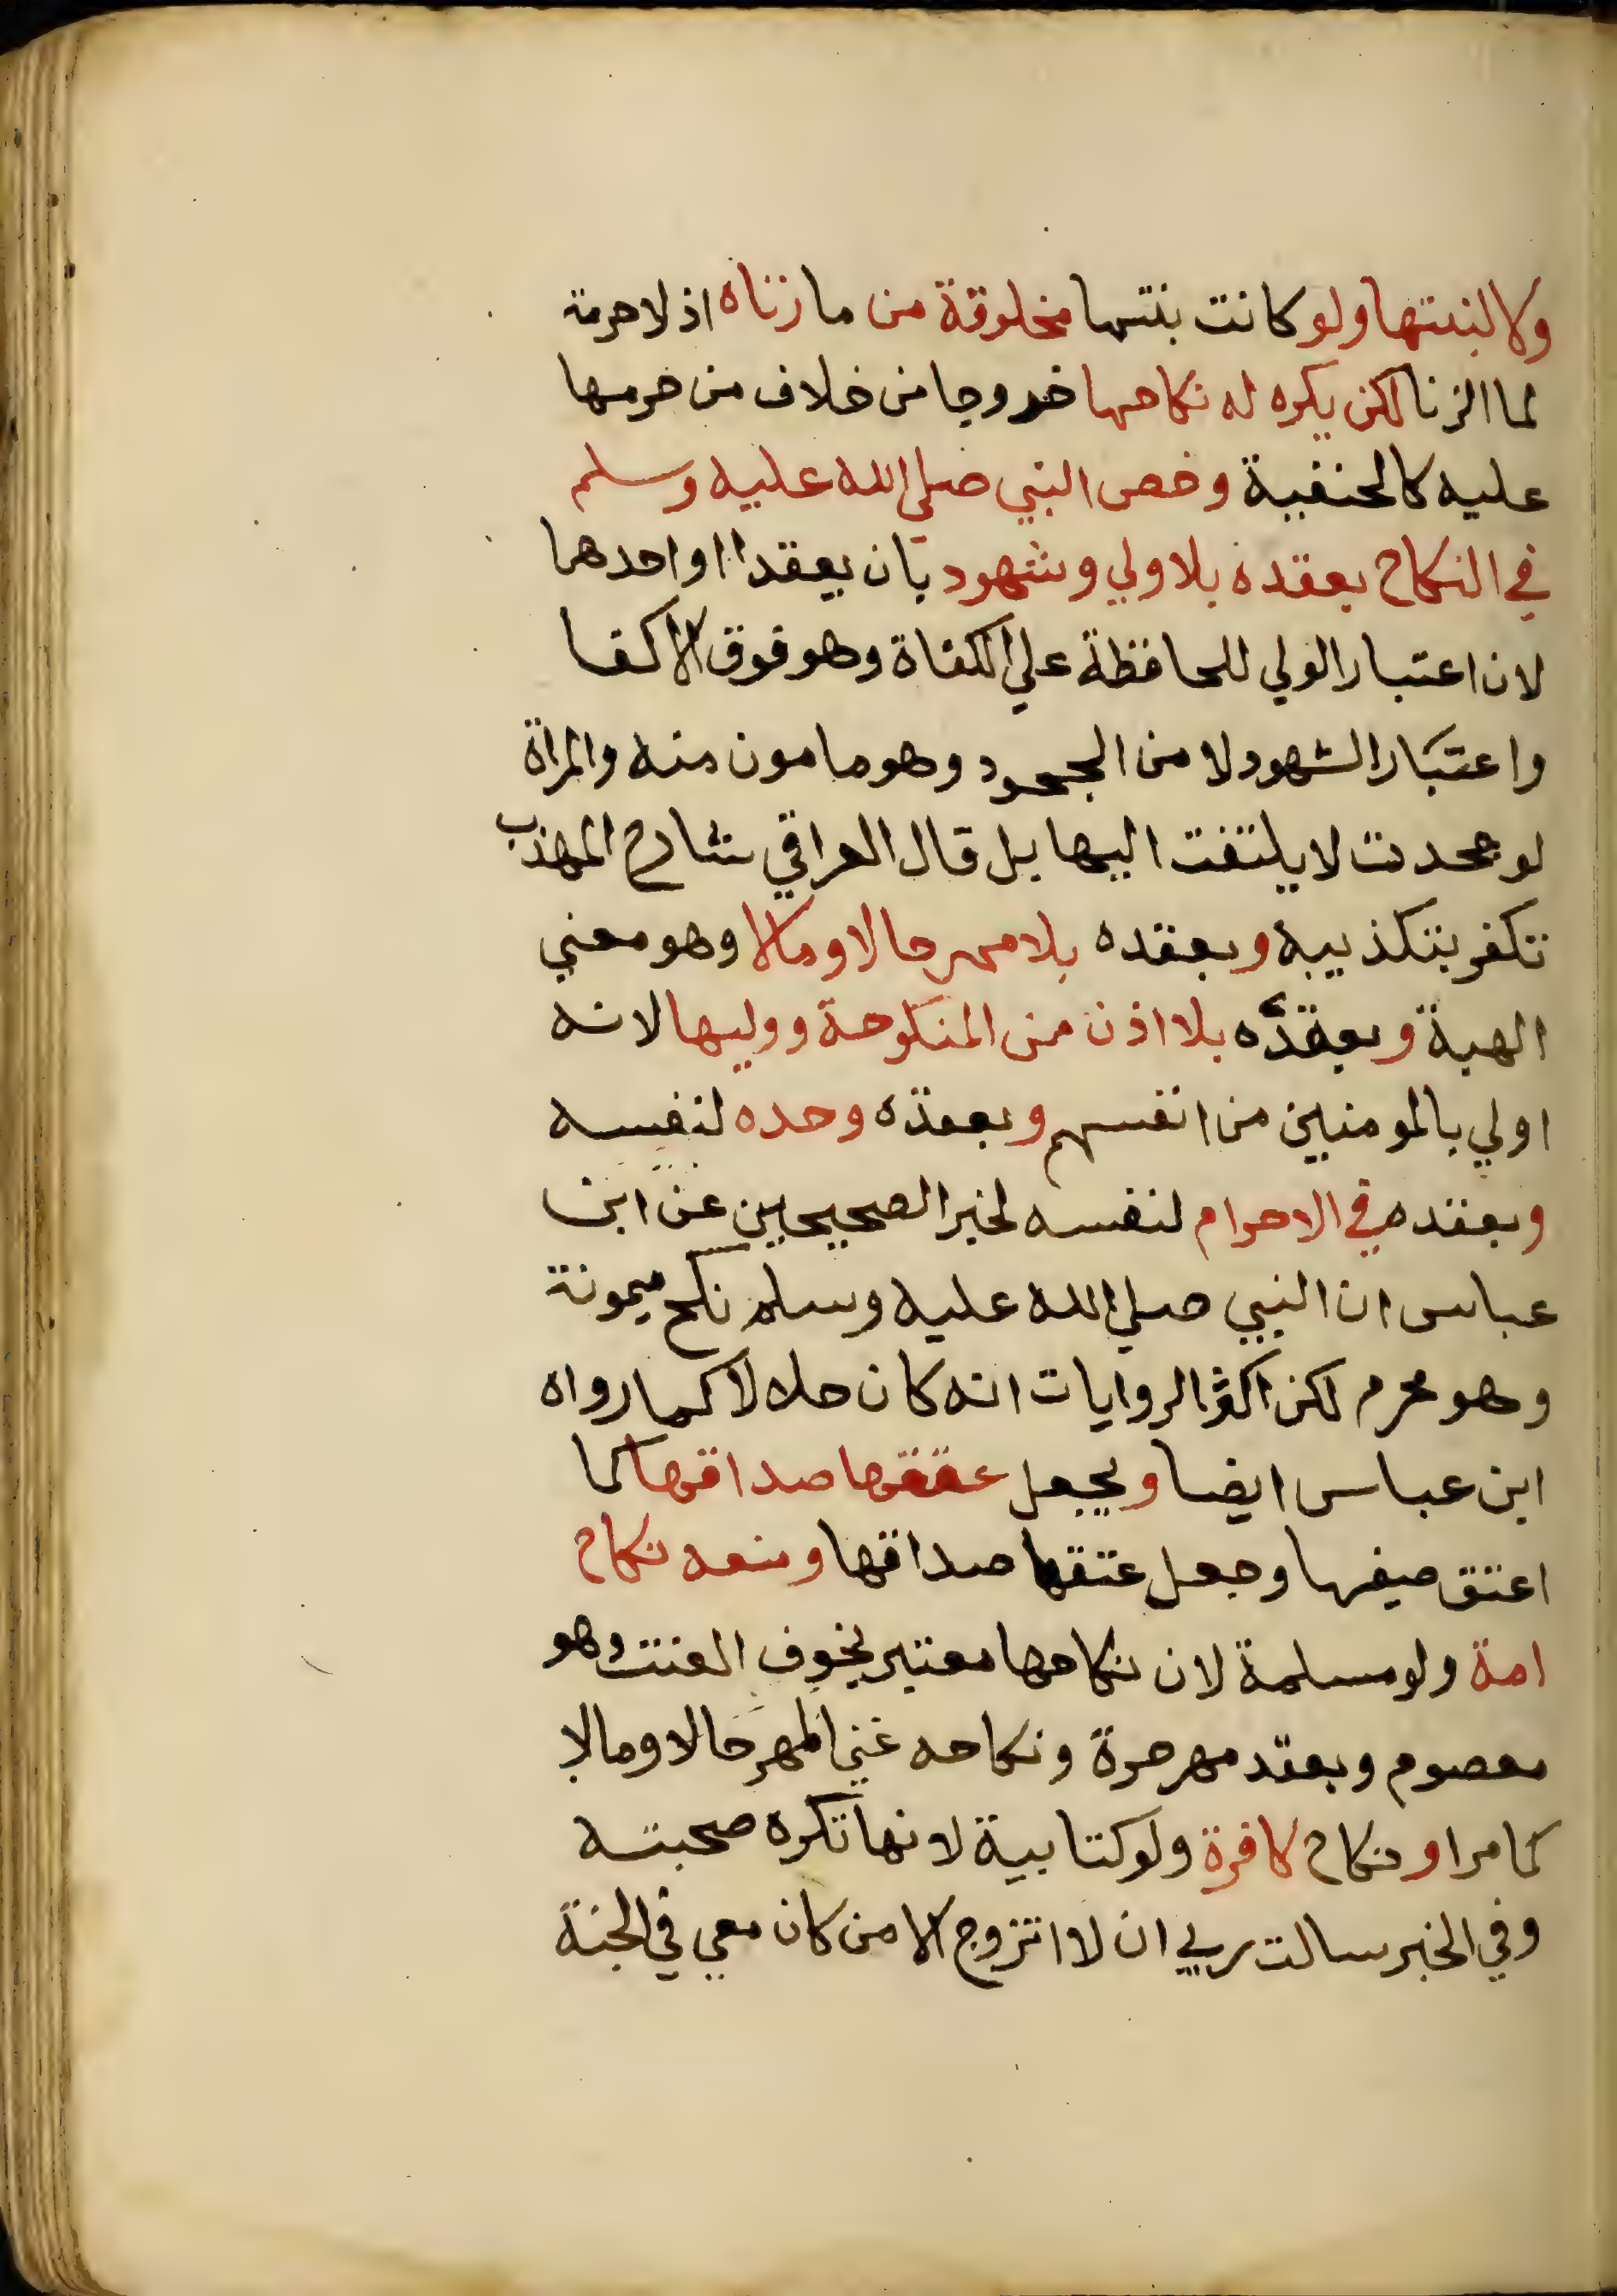 ولا لبنتها ولو كانت بنتها مخلوقة من ما زناه اذ لا حرمة
لما الزنا لكن يكره له نكاحها خروجا من خلاف من حرمها
عليه كالحنفية وخص النبي صلي الله عليه وسلم
في النكاح بعقده بلا ولي وشهود بان يعقدا او احدهما
لان اعتبار الولي للمحافظة علي الكفاة وهو فوق الاكفا
واعتبار الشهود لا من الجحود وهو مامون منه والمراة
لو جحدت لا يلتفت اليها بل قال العراقي شارح المهذب
تكفر بتكذيبه وبعقده بلا مهر حالا ومالا وهو معني
الهبة وبعقده بلا اذن من المنكوحة ووليها لانه
اولي بالمومنين من انفسهم وبعقده وحده لنفسه
وبعقده في الاحرام لنفسه لخبر الصحيحين عن ابن
عباس ان النبي صلي الله عليه وسلم نكح ميمونة
وهو محرم لكن اكثر الروايات انه كان حلالا كما رواه
ابن عباس ايضا ويجعل عتقها صداقها كما
اعتق صفيها وجعل عتقها صداقها ومنعه نكاح
امة ولو مسلمة لان نكاحها معتبر بخوف العنت وهو
معصوم وبعقد مهر حرة ونكاحه غني المهر حالا ومالا
كما مر او نكاح كافرة ولو كتابية لانها تكره صحبته
وفي الخبر سالت ربي ان لا اتزوج الا من كان معي في الجنة